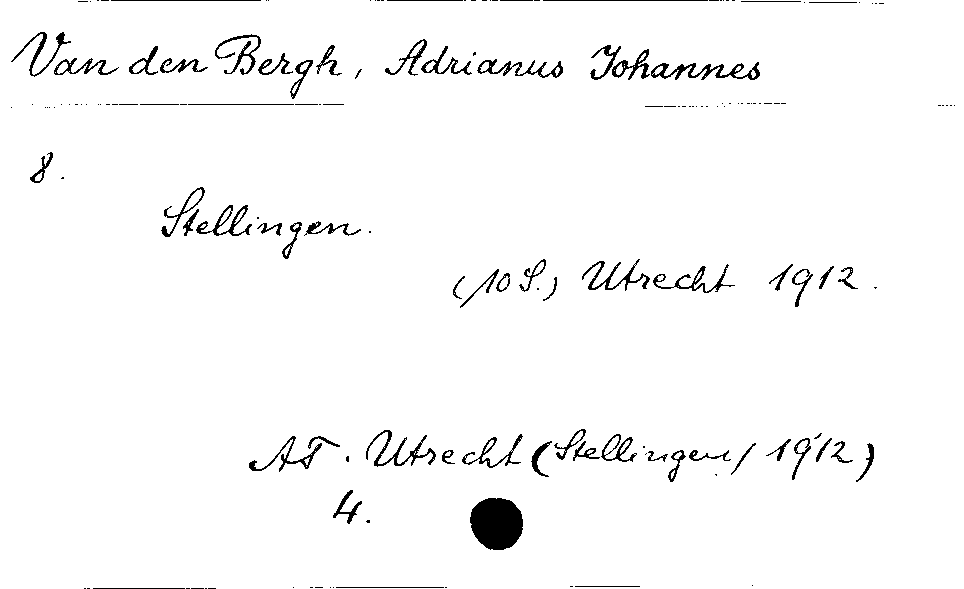 Van den Bergh, Adrianus Johannes
8.
Stellingen.
(10 S.) Utrecht 1912.
AT. Utrecht (Stellingen / 1912)
4.